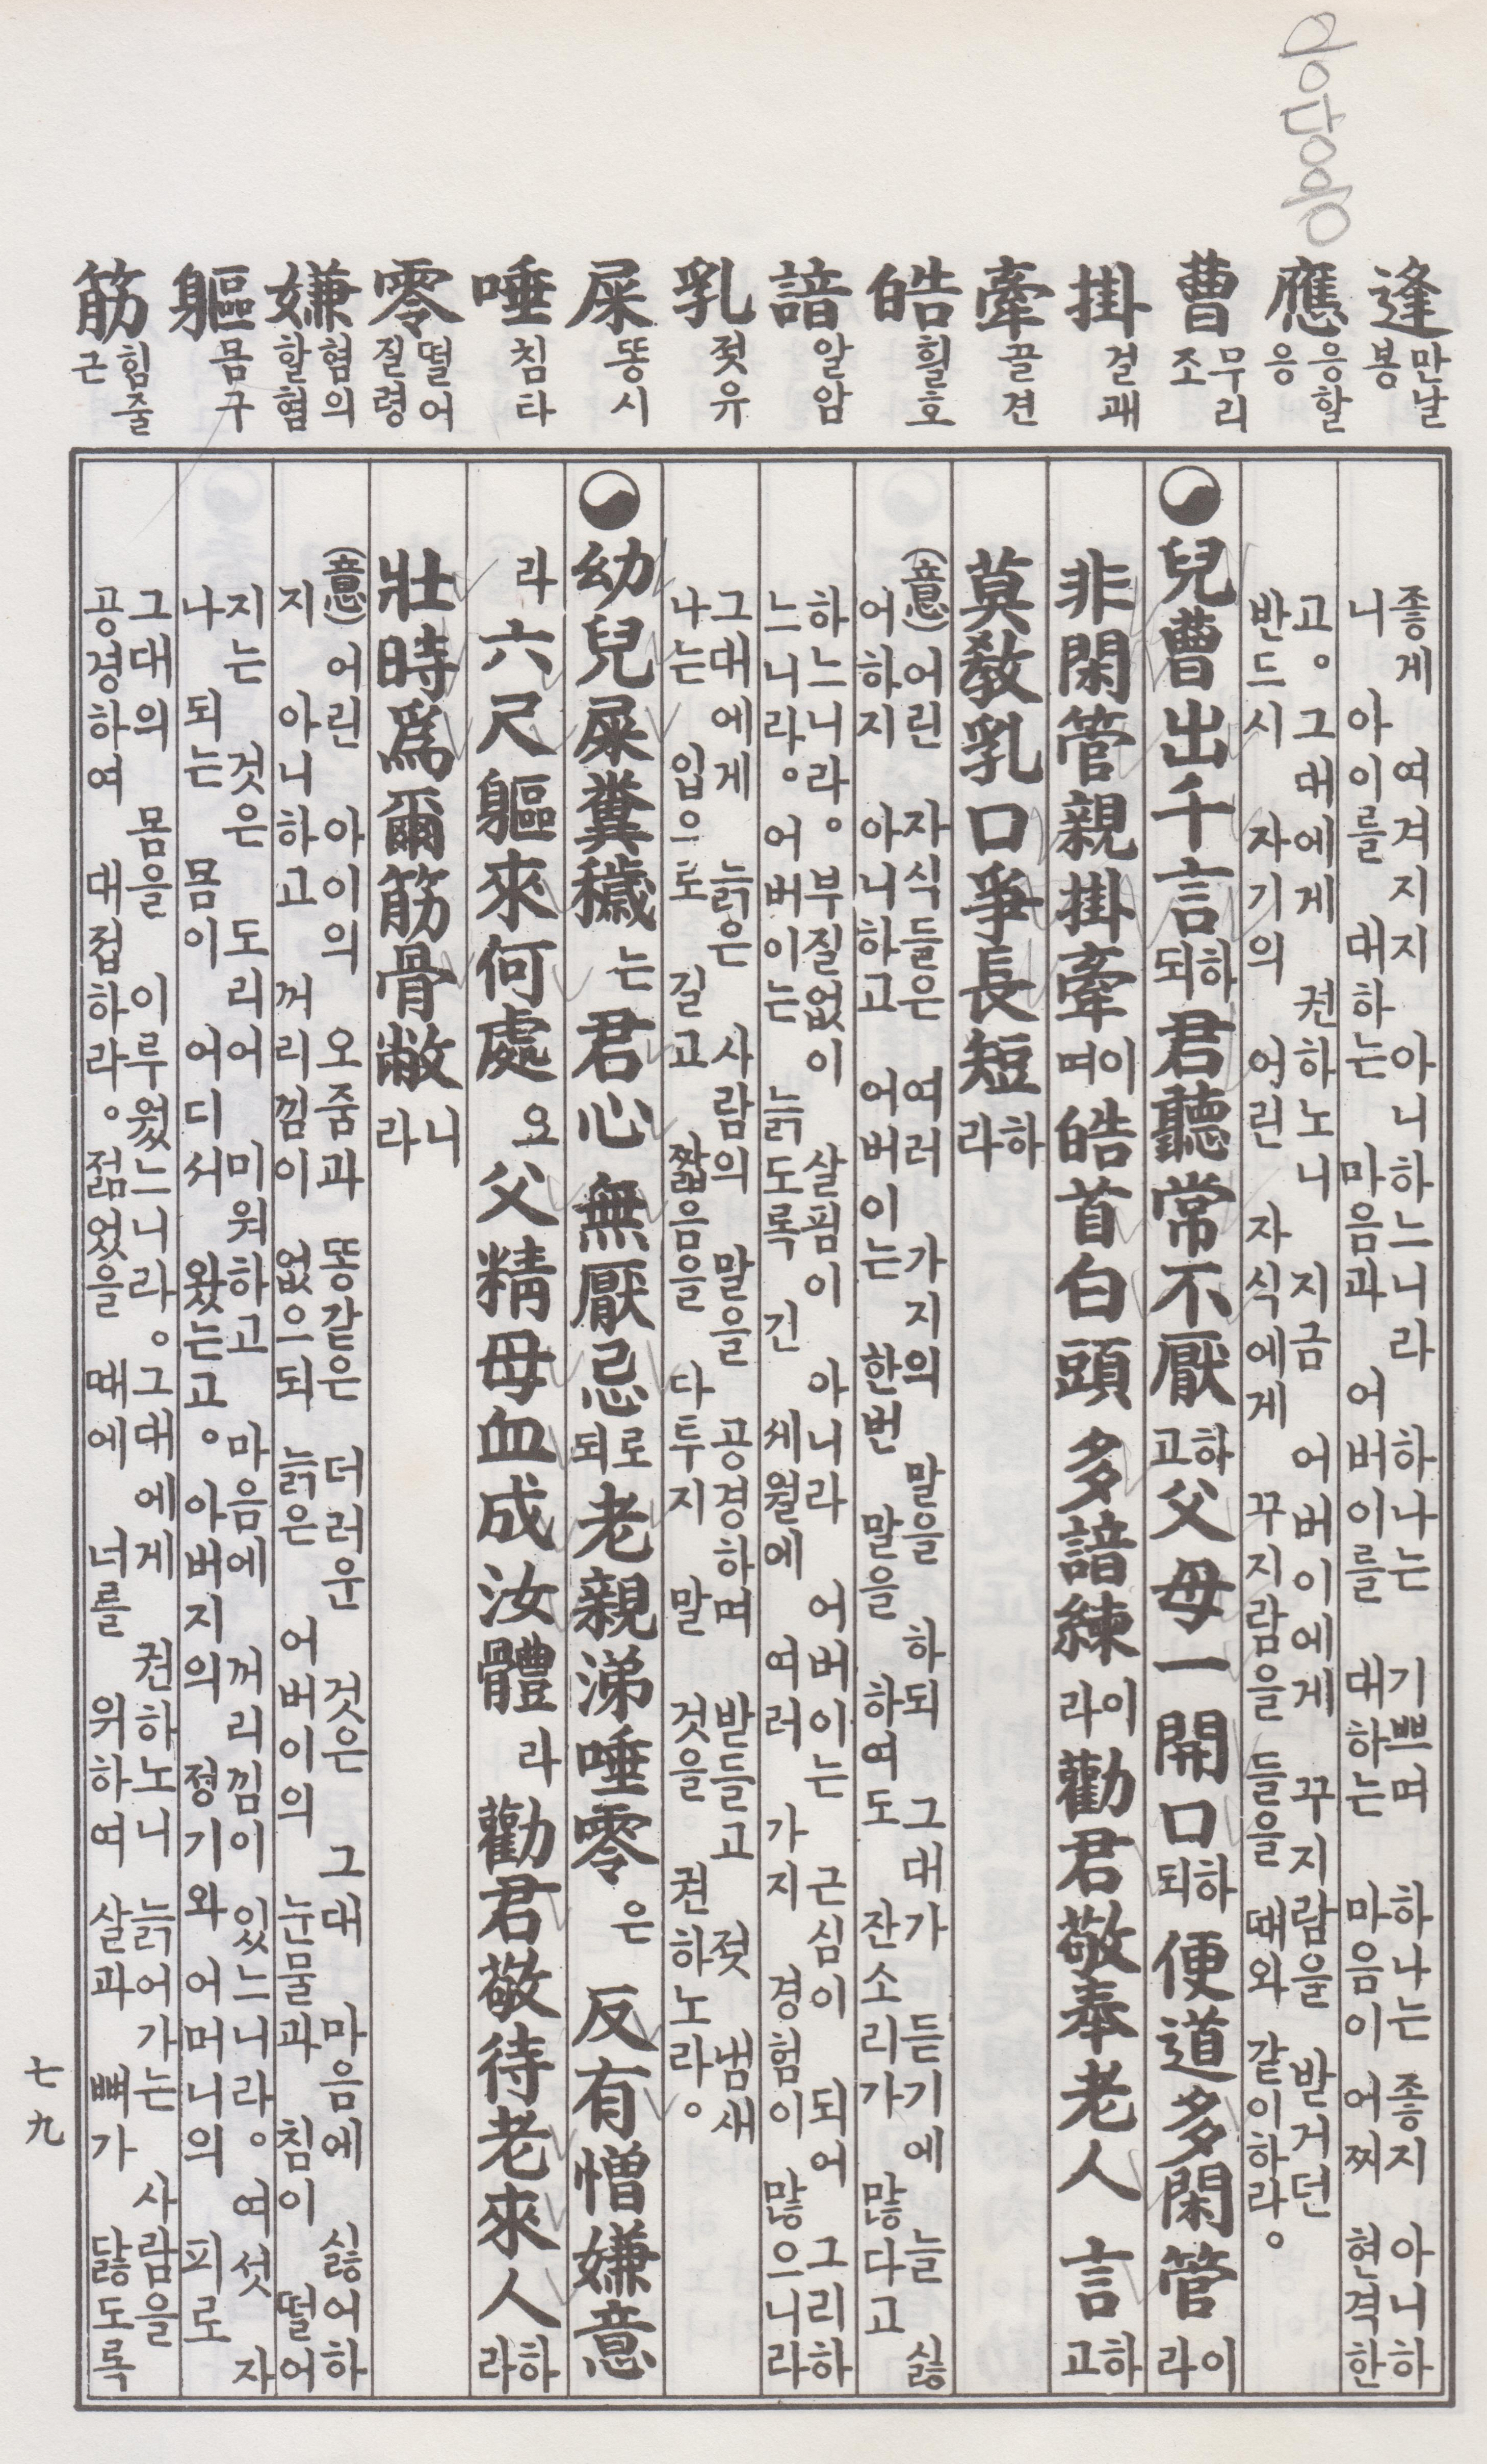 逢 만날 봉
應 응할 응
曹 무리 조
掛 걸 괘
牽 끌 견
皓 흴 호
諳 알 암
乳 젖 유
屎 똥 시
唾 침 타
零 떨어질 령
嫌 혐의할 혐
軀 몸 구
筋 힘줄 근
좋게 여겨지지 아니하느니라 하나는 기쁘며 하나는 좋지 아니하
니 아이를 대하는 마음과 어버이를 대하는 마음이 어찌 현격한
고。 그대에게 권하노니 지금 어버이에게 꾸지람을 받거던
반드시 자기의 어린 자식에게 꾸지람을 들을 때와 같이하라。
兒曹出千言하되 君聽常不厭하고 父母一開口하되 便道多閑管이라
非閑管親掛牽이며 皓首白頭多諳練이라 勸君敬奉老人言하고
莫敎乳口爭長短하라
(意) 어린 자식들은 여러 가지의 말을 하되 그대가 듣기에 늘 싫
어하지 아니하고 어버이는 한번 말을 하여도 잔소리가 많다고
하느니라。 부질없이 살핌이 아니라 어버이는 근심이 되어 그리하
느니라。 어버이는 늙도록 긴 세월에 여러 가지 경험이 많으니라
그대에게 늙은 사람의 말을 공경하며 받들고 젖 냄새
나는 입으로 길고 짧음을 다투지 말 것을 권하노라。
幼兒屎糞穢는 君心無厭忌로되 老親涕唾零은 反有憎嫌意
라 六尺軀來何處요 父精母血成汝體라 勸君敬待老來人하라
壯時爲爾筋骨敝니라
(意) 어린 아이의 오줌과 똥같은 더러운 것은 그대 마음에 싫어하
지 아니하고 꺼리낌이 없으되 늙은 어버이의 눈물과 침이 떨어
지는 것은 도리어 미워하고 마음에 꺼리낌이 있느니라。 여섯 자
나 되는 몸이 어디서 왔는고。 아버지의 정기와 어머니의 피로
그대의 몸을 이루웠느니라。 그대에게 권하노니 늙어가는 사람을
공경하여 대접하라。 젊었을 때에 너를 위하여 살과 뼈가 닳도록
七九